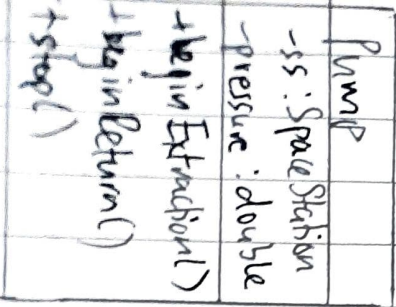 Pump
-ss: SpaceStation
-pressure: double
+beginExtraction()
+beginReturn()
+stop()